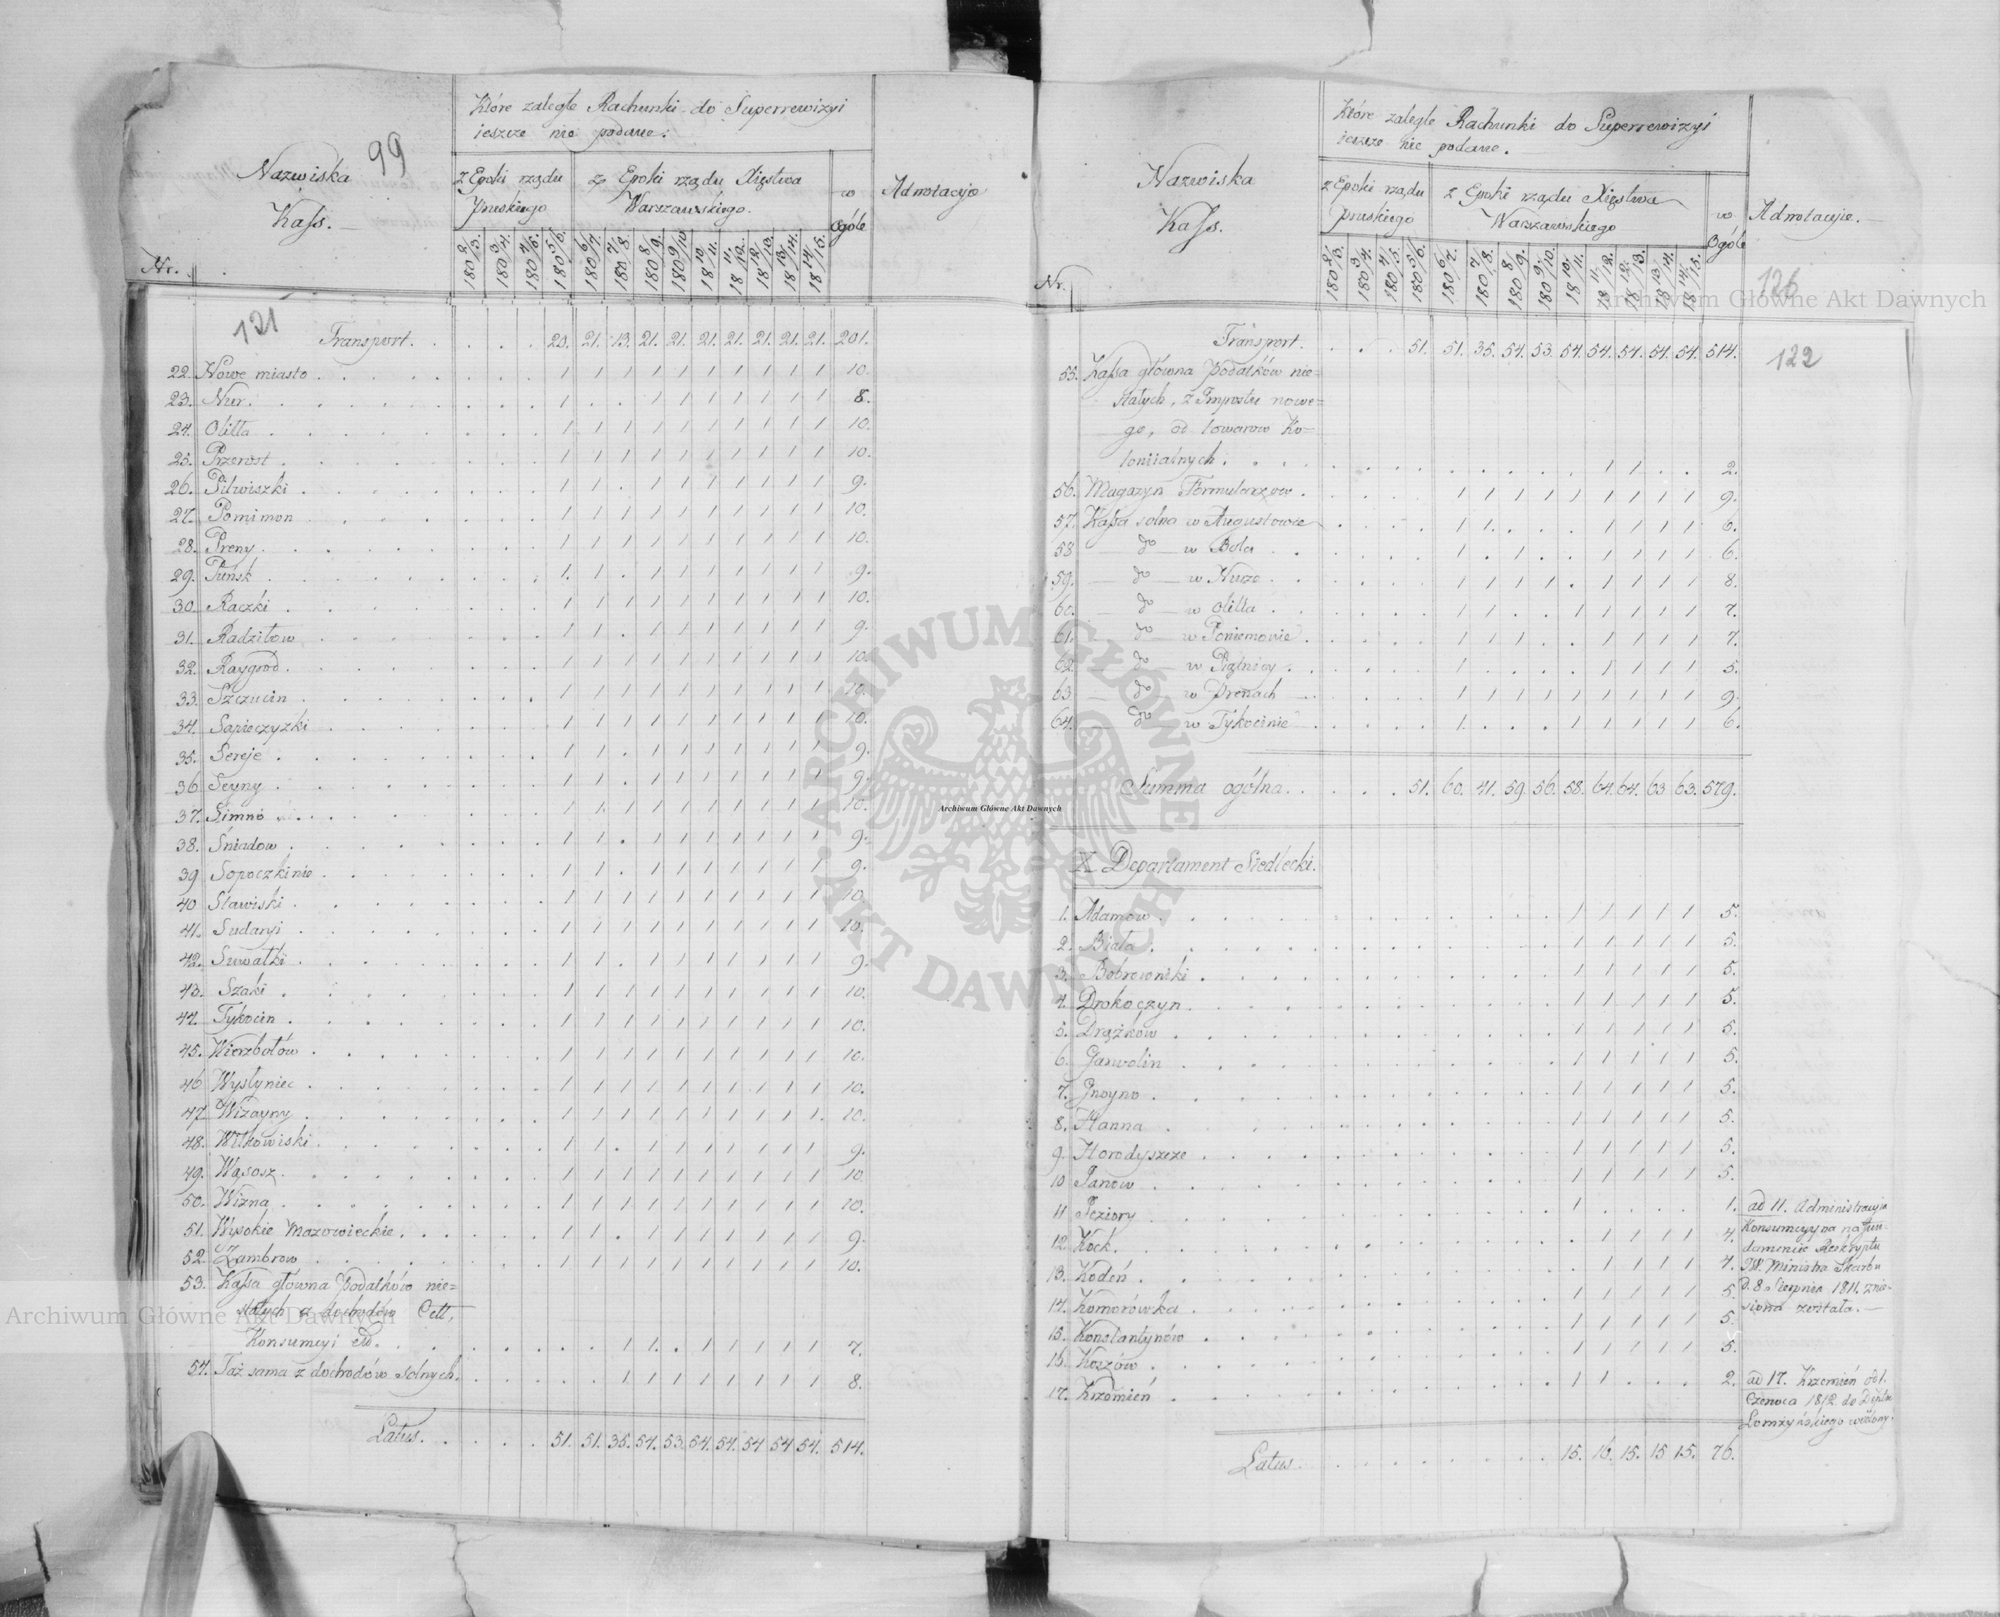 99
121
Nr.
Nazwiska
Kass.
Które zaległe Rachunki do Superrewizyi
ieszcze nie podane.
z Epoki rządu
Pruskiego
z Epoki rządu Xięstwa
Warszawskiego.
w
Ogóle
Adnotacyje
180 2/3. 180 3/4. 180 4/5. 180 5/6. 180 6/7. 180 7/8. 180 8/9. 180 9/10. 18 10/11. 18 11/12. 18 12/13. 18 13/14. 18 14/15.
Transport. . . . . 20. 21. 13. 21. 21. 21. 21. 21. 21. 21. 201.
22. Nowe miasto . 1 1 1 1 1 1 1 1 1 1 10.
23. Nur. . 1 . . 1 1 1 1 1 1 1 8.
24. Olitta . 1 1 1 1 1 1 1 1 1 1 10.
25. Przerosl . 1 1 1 1 1 1 1 1 1 1 10.
26. Pilwiszki . 1 1 . 1 1 1 1 1 1 1 9.
27. Pomimon 1 1 1 1 1 1 1 1 1 1 10.
28. Preny . 1 1 1 1 1 1 1 1 1 1 10.
29. Puńsk . 1. 1 . 1 1 1 1 1 1 1 9.
30. Raczki . 1 1 1 1 1 1 1 1 1 1 10.
31. Radziłow . 1 1 . 1 1 1 1 1 1 1 9.
32. Raygrod . 1 1 1 1 1 1 1 1 1 1 10.
33. Szczucin . 1 1 1 1 1 1 1 1 1 1 10.
34. Sapieczyzki . 1 1 1 1 1 1 1 1 1 1 10.
35. Sereje . 1 1 . 1 1 1 1 1 1 1 9.
36 Seyny . 1 1 . 1 1 1 1 1 1 1 9.
37. Simno . 1 1 1 1 1 1 1 1 1 1 10.
38. Śniadow . 1 1 . 1 1 1 1 1 1 1 9.
39 Sopoczkinie . 1 1 . 1 1 1 1 1 1 1 9.
40 Stawiski . 1 1 1 1 1 1 1 1 1 1 10.
41. Sudargi . 1 1 1 1 1 1 1 1 1 1 10.
42. Suwałki . 1 1 . 1 1 1 1 1 1 1 9.
43. Szaki . 1 1 1 1 1 1 1 1 1 1 10.
44. Tykocin . 1 1 1 1 1 1 1 1 1 1 10.
45. Wierzbołów . 1 1 1 1 1 1 1 1 1 1 10.
46 Wysłyniec . 1 1 1 1 1 1 1 1 1 1 10.
47. Wizayny . 1 1 1 1 1 1 1 1 1 1 10.
48. Wilkowiski . 1 1 . 1 1 1 1 1 1 1 9.
49. Wąsosz . 1 1 1 1 1 1 1 1 1 1 10.
50. Wizna . 1 1 1 1 1 1 1 1 1 1 10.
51. Wysokie Mazowieckie . 1 1 . 1 1 1 1 1 1 1 9.
52. Zambrow . 1 1 1 1 1 1 1 1 1 1 10.
53. Kassa główna Podatków nie=
stałych z dochodów Cell,
Konsumcyi . . . 1 1. . 1 1 1 1 1 7.
54. Taż sama z dochodów solnych. . . 1 1 1 1 1 1 1 1 8.
Latus. . . . . 51. 51. 35. 54. 53. 54. 54. 54 54 54. 514.
126
122
Nr.
Nazwiska
Kass.
Które zaległe Rachunki do Superrewizyi
ieszcze nie podane.
z Epoki rządu
pruskiego
z Epoki rządu Xięstwa
Warszawskiego
w
Ogóle
Adnotacyje.
180 2/3. 180 3/4. 180 4/5. 180 5/6. 180 6/7. 180 7/8. 180 8/9. 180 9/10. 18 10/11. 18 11/12. 18 12/13. 18 13/14. 18 14/15.
Transport. . . . 51. 51. 35. 54. 53. 54. 54. 54. 54. 54. 514.
55. Kassa główna Podatków nie=
stałych, z Impostu nowe=
go, od towarów Ko=
loniialnych . . . 1 1 . . 2.
56. Magazyn Formularzow . 1 1 1 1 1 1 1 1 1 9.
57. Kassa solna w Augustowie . 1 1. . . . 1 1 1 1 6.
58 — do — w Bola . 1 . 1 . . 1 1 1 1 6.
59. — do — w Nurze . 1 1 1 1 . 1 1 1 1 8.
60. — do — w Olitta . 1 1 . . 1 1 1 1 1 7.
61. — do — w Poniemonie . 1 1 1 . . 1 1 1 1 7.
62 — do — w Piątnicy . 1 . . . . 1 1 1 1 5.
63 — do — w Prenach . 1 1 1 1 1 1 1 1 1 9.
64. — do — w Tykocinie . 1 . . . 1 1 1 1 1 6.
Summa ogólna . . . . . 51. 60. 41. 59 56. 58. 64. 64. 63 63. 579.
X Departament Siedlecki.
1. Adamow . 1 1 1 1 1 5.
2. Biała . 1 1 1 1 1 5.
3. Bobrowniki . 1 1 1 1 1 5.
4. Drohoczyn . 1 1 1 1 1 5.
5. Drążków . 1 1 1 1 1 5.
6. Garwolin . 1 1 1 1 1 5.
7. Gnoyno . 1 1 1 1 1 5.
8. Hanna . 1 1 1 1 1 5.
9. Horodyszcze . 1 1 1 1 1 5.
10 Janow . 1 1 1 1 1 5.
11 Jeziory . 1 . . . . 1. ad 11. Administracyia
Konsumcyyna na fun=
damencie Reskryptu
JW. Ministra Skarbu
D. 8. Sierpnia 1811. znie=
siona została. —
12. Kock. . 1 1 1 1 4.
13. Kodeń . 1 1 1 1 4.
14. Komarówka . 1 1 1 1 1 5.
15. Konstantynów . 1 1 1 1 1 5.
16. Koszów . 1 1 1 1 1 5.
17. Krzemień . 1 1 . . . 2. ad 17. Krzemień od 1.
Czerwca 1812. do Deptu
Łomżyńskiego wcielony.
Latus. . . . 15. 16. 15. 15 15. 76.
Archiwum Główne Akt Dawnych
Archiwum Główne Akt Dawnych
Archiwum Główne Akt Dawnych
ARCHIWUM GŁÓWNE AKT DAWNYCH